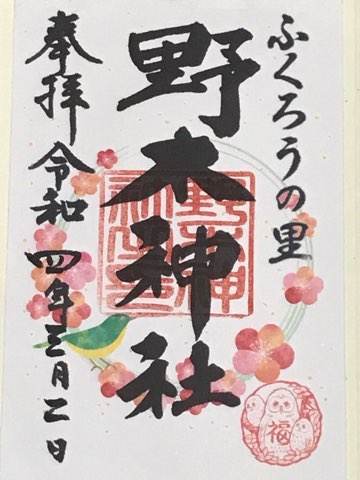 ふくろうの里
野木神社
奉拝 令和四年三月二日
福